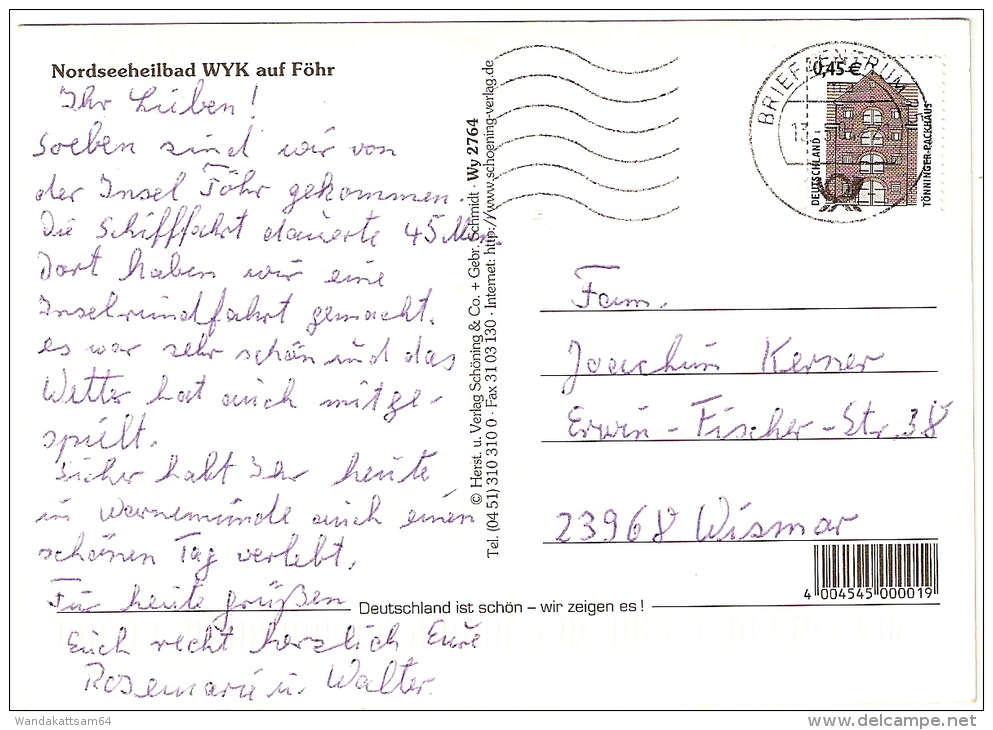 Nordseeheilbad WYK auf Föhr
Ihr Lieben!
Soeben sind wir von
der Insel Föhr gekommen.
Die Schifffahrt dauerte 45 Min.
Dort haben wir eine
Inselrundfahrt gemacht.
es war sehr schön und das
Wetter hat auch mitge-
spielt.
Sicher habt Ihr heute
in Warnemünde auch einen
schönen Tag verlebt.
Für heute grüßen
Euch recht herzlich Eure
Rosemarie u. Walter.
© Herst. u. Verlag Schöning & Co. + Gebr. Schmidt · Wy 2764
Tel. (04 51) 310 310 0 · Fax 31 03 130 · Internet: http://www.schoening-verlag.de
BRIEFZENTRUM
13.
0,45 €
DEUTSCHLAND
TÖNNINGER PACKHAUS
Fam.
Joachim Kerner
Erwin-Fischer-Str. 38
23968 Wismar
4 004545 000019
Deutschland ist schön – wir zeigen es!
Wandakattsam64
delcampe.net